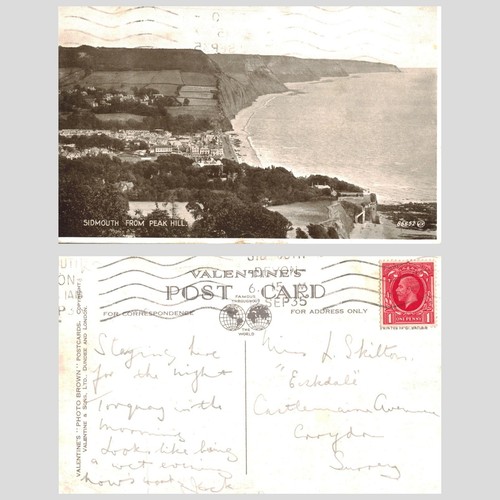 SIDMOUTH FROM PEAK HILL.
VALENTINE'S
POST CARD
FAMOUS
THROUGHOUT
THE
WORLD
FOR CORRESPONDENCE
FOR ADDRESS ONLY
SIDMOUTH
DEVON
6. 15 PM
SEP 35
ONE PENNY
1 1
VALENTINE'S "PHOTO BROWN" POSTCARDS. COPYRIGHT.
VALENTINE & SONS, LTD., DUNDEE AND LONDON.
Staying here
for the night
Torquay in the
morning
Looks like being
a wet evening
Jack
Miss L. Skilton
"Eskdale"
Castlemaine Avenue
Croydon
Surrey